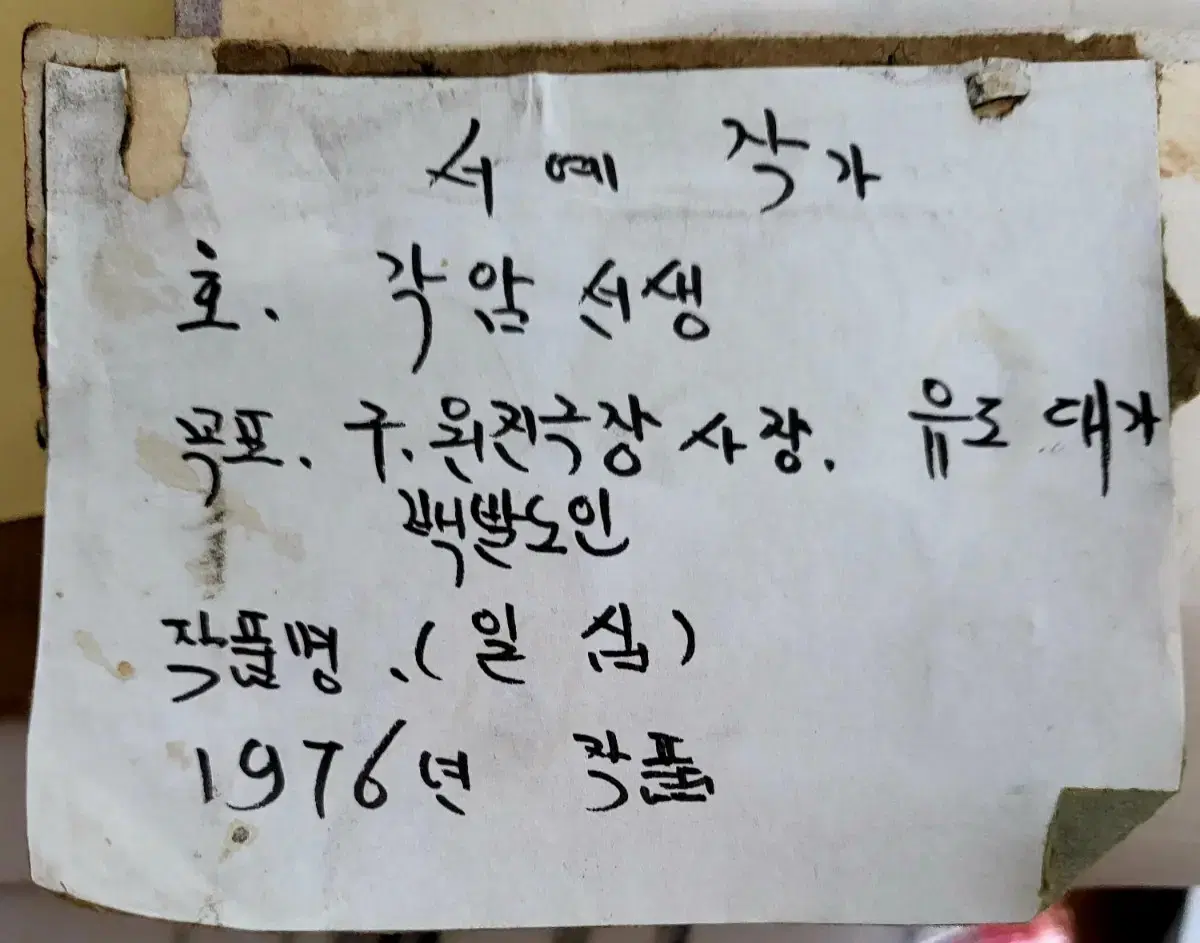 서예 작가
호. 각암 선생
목포. 구. 원진극장 사장. 유도 대가
백발도인
작품명. (일 심)
1976년 작품